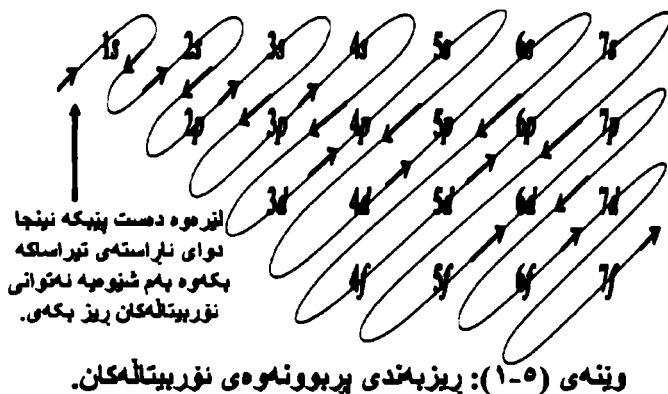 1s 2s 3s 4s 5s 6s 7s
2p 3p 4p 5p 6p 7p
3d 4d 5d 6d 7d
4f 5f 6f 7f
لێرەوە دەست پێبکە ئینجا
دوای ئاراستەی تیراساکە
بکەوە بەم شێوەیە ئەتوانی
ئۆربیتاڵەکان ڕیز بکەی.
وێنەی (٥-١): ڕیزبەندی پڕبوونەوەی ئۆربیتاڵەکان.